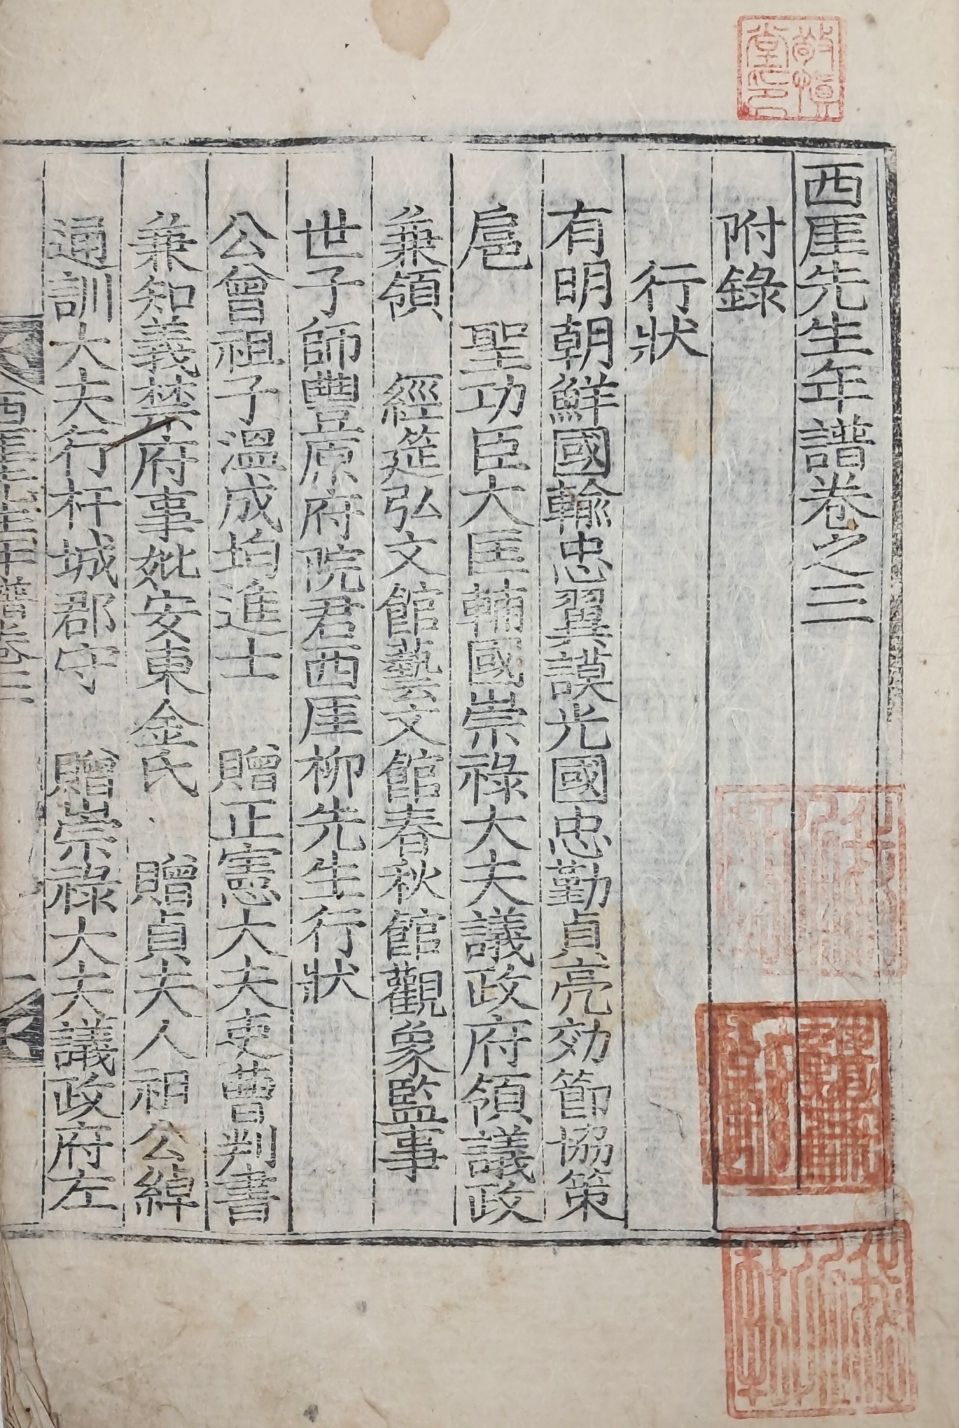 西厓先生年譜卷之三
附錄
行狀
有明朝鮮國輸忠翼謨光國忠勤貞亮効節協策
扈　聖功臣大匡輔國崇祿大夫議政府領議政
兼領　經筵弘文館藝文館春秋館觀象監事
世子師豐原府院君西厓柳先生行狀
公曾祖子溫成均進士　贈正憲大夫吏曹判書
兼知義禁府事妣安東金氏　贈貞夫人祖公綽
通訓大夫行杆城郡守　贈崇祿大夫議政府左
西厓先生年譜卷三
一
敬愼堂印